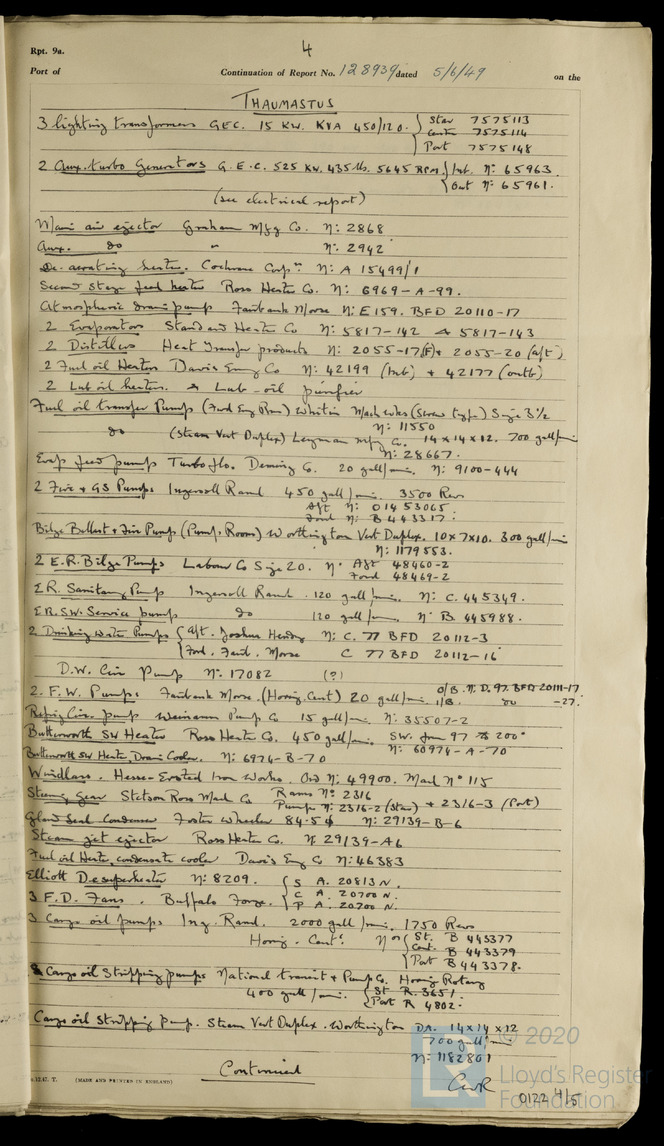 Rpt. 9a.
4
Port of
Continuation of Report No. 128939 dated 5/6/49 on the
THAUMASTUS
3 lighting transformers GEC. 15 KW. KVA 450/120. Star 7575113
Cent 7575114
Port 7575148
2 Aux. turbo Generators G.E.C. 525 KW. 435 lbs. 5645 RPM. Inb. Nº 65963
Out Nº 65961.
(see electrical report)
Main air ejector Graham Mfg Co. Nº 2868
Aux. do " Nº 2942
De-aerating heater. Cochrane Corpn Nº A 15499/1
Second Stage feed heater Ross Heater Co. Nº 6969-A-99.
Atmospheric drain pump Fairbank Morse Nº E159. BFD 20110-17
2 Evaporators Standard Heater Co Nº 5817-142 & 5817-143
2 Distillers Heat Transfer products Nº 2055-17(F) & 2055-20 (aft)
2 Fuel oil Heaters Davis Eng Co Nº 42199 (Inb) + 42177 (outb)
2 Lub oil heaters. & Lub-oil purifier
Fuel oil transfer Pump (Ford Eng Rm) Whitin Mach wks (Screw type) Size 3½
Nº 11550
do (Steam Vert Duplex) Layman Mfg Co. 14x14x12. 700 gall/min
Nº 28667.
Evap feed pump Turboflo. Deming Co. 20 gall/min. Nº 9100-444
2 Fire & GS Pumps Ingersoll Rand 450 gall/min. 3500 Revs
Aft Nº 01453065
Ford Nº B 443317.
Bilge Ballast & Fire Pump (Pump Room) Worthington Vert Duplex. 10x7x10. 300 gall/min
Nº 1179553.
2 E.R. Bilge Pumps Labour Co Size 20. Nº Aft 48460-2
Ford 48469-2
E.R. Sanitary Pump Ingersoll Rand 120 gall/min. Nº C. 445349.
E.R. S.W. Service pump do 120 gall/min Nº B. 445988.
2 Drinking Water Pumps Aft. Joshua Hendy Nº C. 77 BFD 20112-3
Ford. Fair. Morse C 77 BFD 20112-16
D.W. Cir Pump Nº 17082 (?)
2. F.W. Pumps. Fairbank Morse. (Horiz. Cent) 20 gall/min o/B. Nº D. 97. BFD 20111-17
1/B. do -27.
Refrig Circ. pump Weinman Pump Co 15 gall/min. Nº 35507-2
Butterworth SW Heater Ross Heater Co. 450 gall/min. SW. from 97 to 200°
Nº 60974-A-70
Butterworth SW Heater, Drain Cooler. Nº 6974-B-70
Windlass. Hesse-Ersted Iron Works. Ord Nº 49900. Mach Nº 115
Steering Gear Stetson Ross Mach Co Rams Nº 2316
Pump Nº 2316-2 (Star) + 2316-3 (Port)
Gland Seal Condenser Foster Wheeler 84.5 ϕ Nº 29139-B-6
Steam jet ejector Ross Heater Co. Nº 29139-A6
Fuel oil Heater, condensate cooler Davis Eng Co Nº 46383
Elliott Desuperheater Nº 8209. S A. 20813 N.
3 F.D. Fans. Buffalo Forge. C A. 20700 N.
P A. 20700 N.
3 Cargo oil pumps Ing. Rand. 2000 gall/min. 1750 Revs
Horiz. Cent. Nos St. B 443377
Cent. B 443379
Port B 443378.
2 Cargo oil Stripping pumps National transit & Pump Co. Horiz Rotary
400 gall/min. St R. 3651
Port R 4802.
Cargo oil Stripping Pump. Steam Vert Duplex. Worthington DA. 14x14x12
700 gall/min
Nº 1182801
Continued
GWR
12.47. T. (MADE AND PRINTED IN ENGLAND)
© 2020
Lloyd's Register
Foundation
0122 4/5